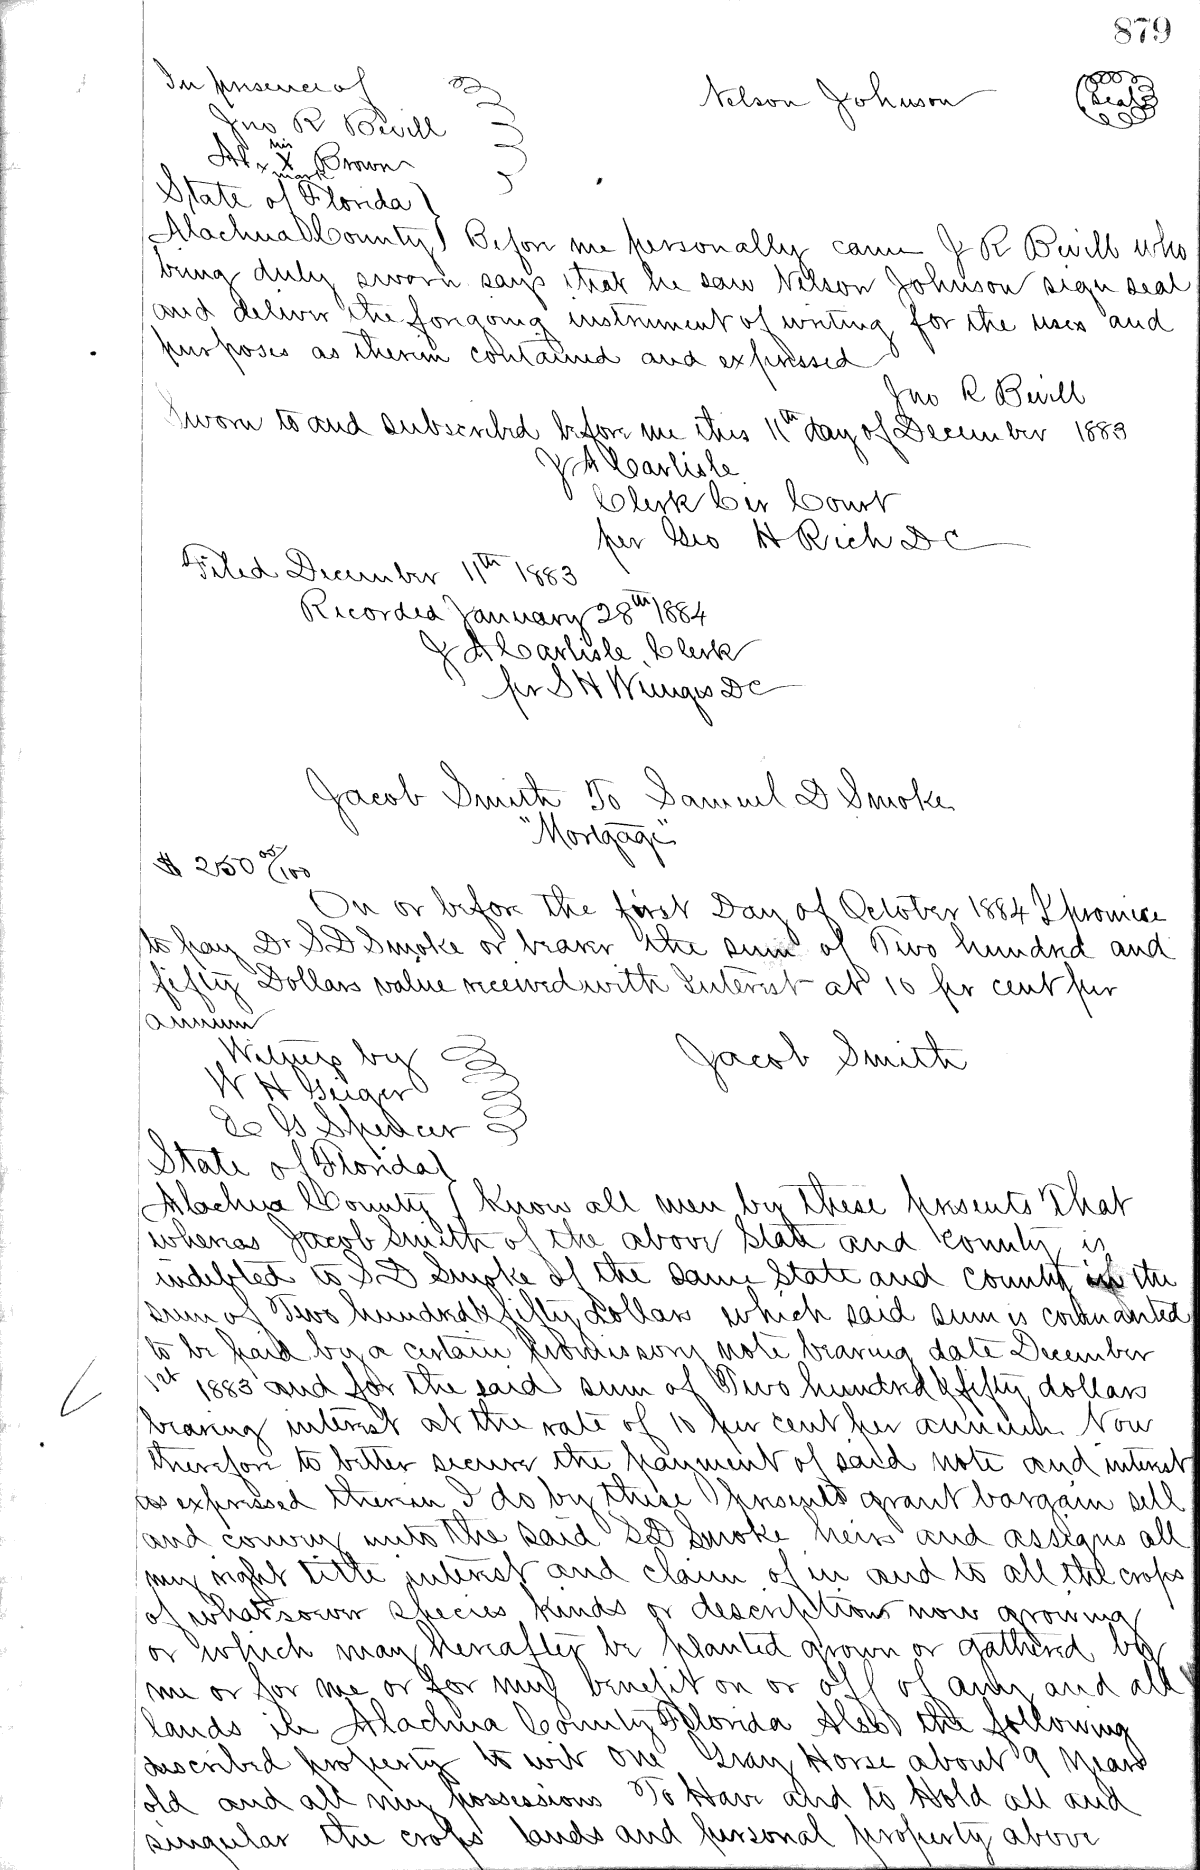 879
In presence of
Nelson Johnson
Seal
Jno R Bevill
his
Alex X Brown
mark
State of Florida
Alachua County Before me personally came J R Bevill who
being duly sworn says that he saw Nelson Johnson sign seal
and deliver the forgoing instrument of writing for the uses and
purposes as therein contained and expressed
Jno R Bevill
Sworn to and subscribed before me this 11th day of December 1883
J A Carlisle
Clerk Cir Court
per Geo H Rich DC
Filed December 11th 1883
Recorded January 28th 1884
J A Carlisle Clerk
per S H Wienges DC
Jacob Smith To Samuel D Smoke
"Mortgage"
$ 250 00/100
On or before the first Day of October 1884 I promise
to pay Dr S D Smoke or bearer the sum of Two hundred and
fifty Dollars value received with Interest at 10 per cent per
annum
Witness by
Jacob Smith
W H Geiger
E G Spencer
State of Florida
Alachua County Know all men by these presents That
whereas Jacob Smith of the above State and County is
indebted to S D Smoke of the same State and county in the
sum of Two hundred & fifty dollars which said sum is covenanted
to be paid by a certain promissory note bearing date December
1st 1883 and for the said sum of Two hundred & fifty dollars
bearing interest at the rate of 10 per cent per annum Now
therefore to better secure the payment of said note and interest
as expressed therein I do by these presents grant bargain sell
and convey unto the said S D Smoke heirs and assigns all
my right title interest and claim of in and to all the crops
of whatsoever species kinds or descriptions now growing
or which may hereafter be planted grown or gathered by
me or for me or for my benefit on or off of any and all
lands in Alachua County Florida Also the following
described property to wit one Gray Horse about 9 Years
old and all my possessions To Have and to Hold all and
singular the crops lands and personal property above